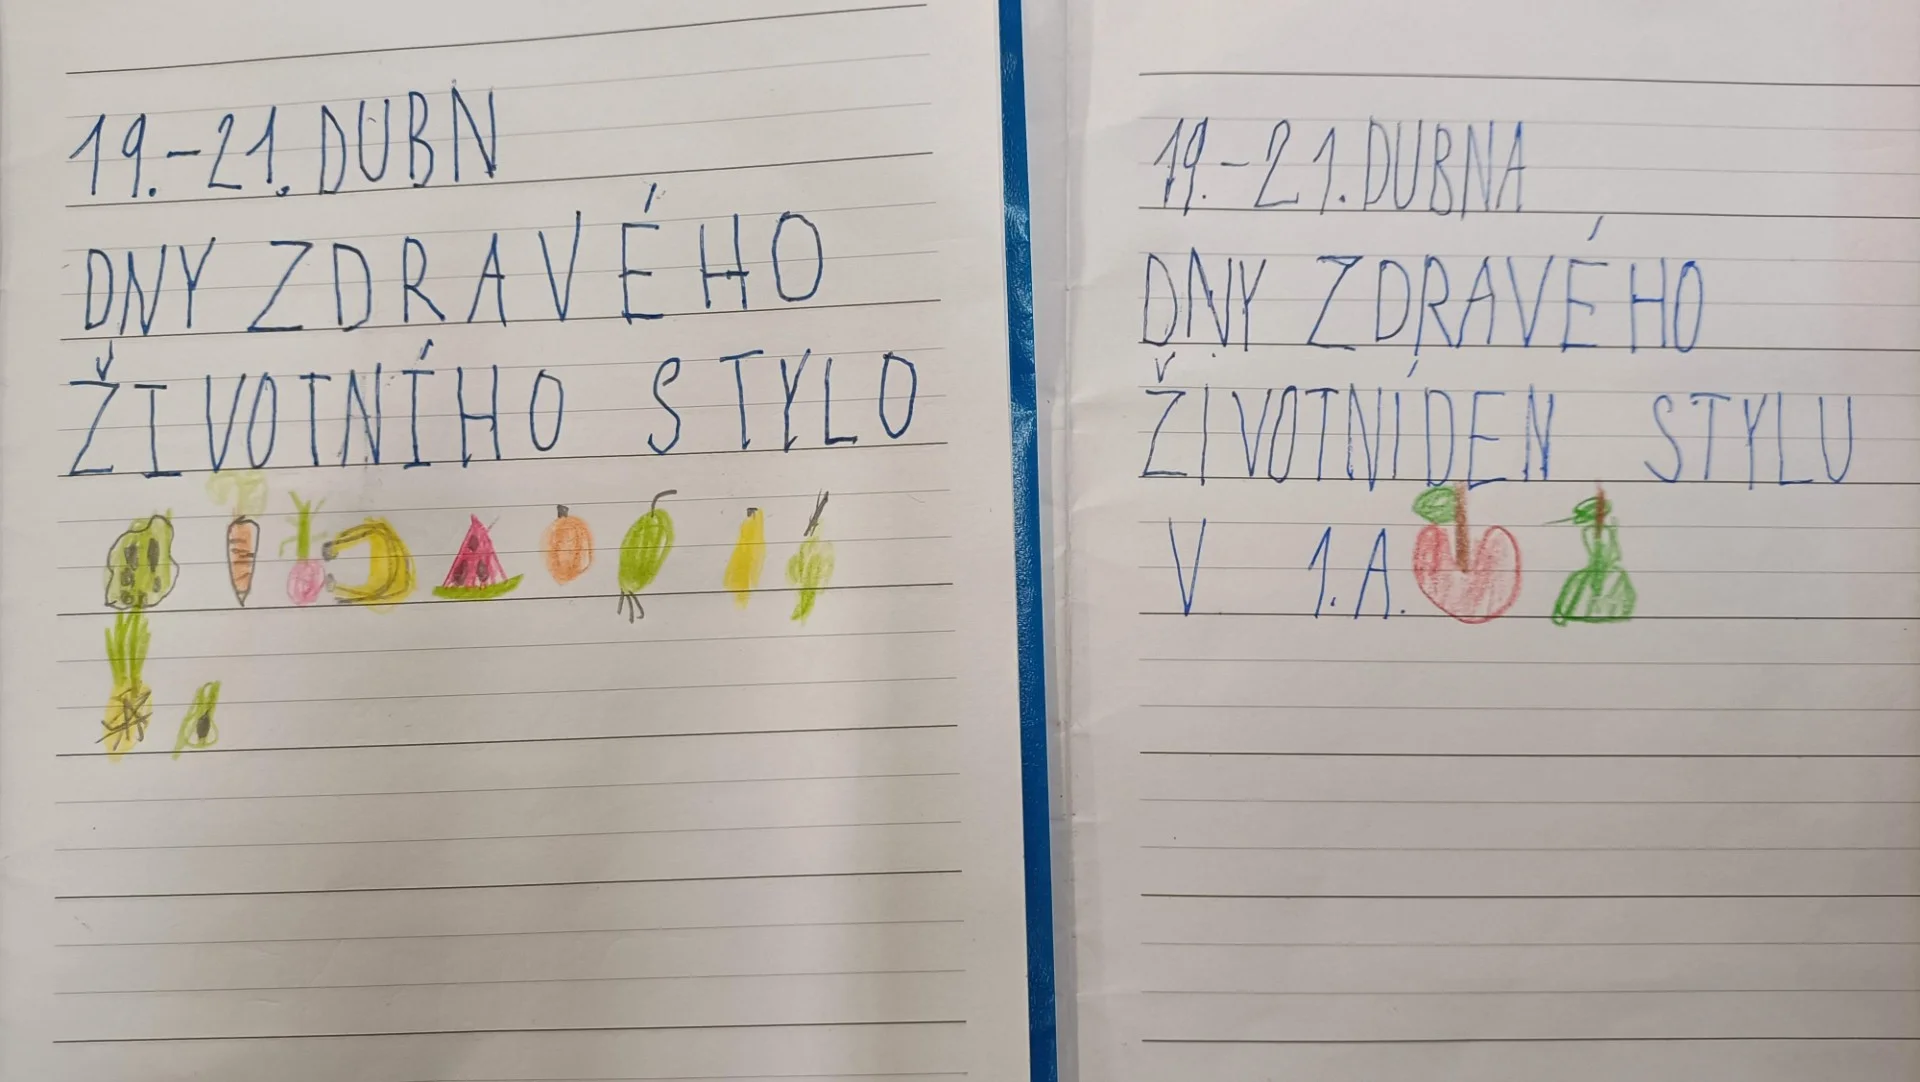 19.-21. DUBN
DNY ZDRAVÉHO
ŽIVOTNÍHO STYLO
19.-21. DUBNA
DNY ZDRAVÉHO
ŽIVOTNÍDEN STYLU
V 1.A.